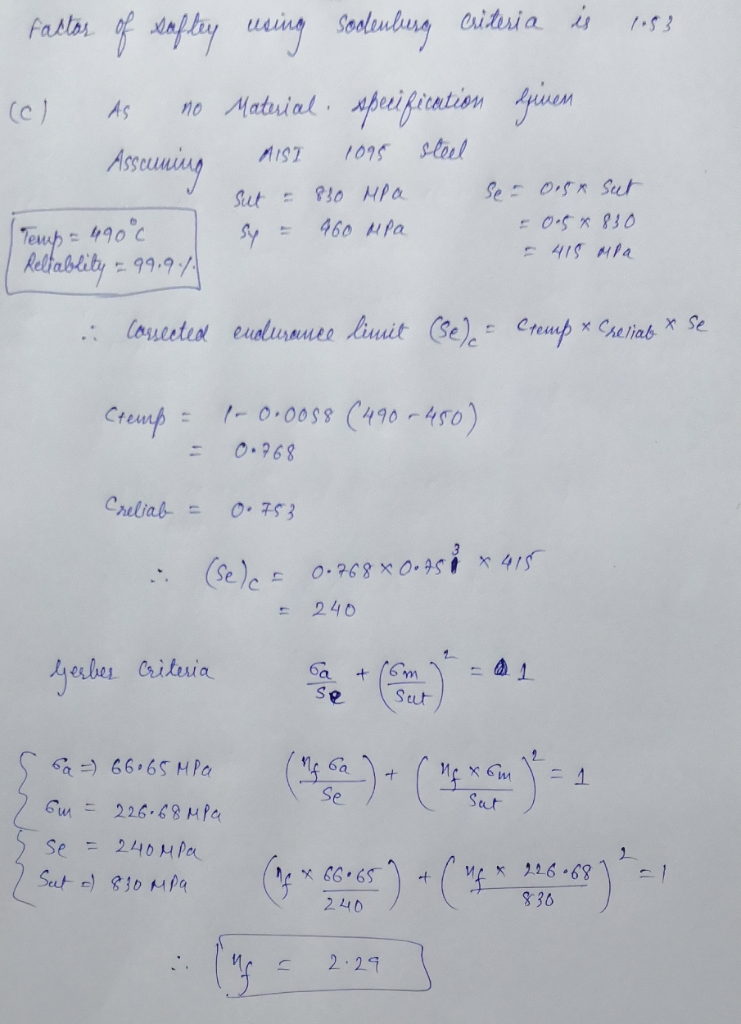 Factor of saftey using Sodenburg criteria is 1.53
(c) As no Material. specification given
Assuming AISI 1095 steel
Sut = 830 MPa Se = 0.5 x Sut
Temp = 490°C Sy = 460 MPa = 0.5 x 830
Reliability = 99.9% = 415 MPa
∴ Corrected endurance limit (Se)c = Ctemp x Creliab x Se
Ctemp = 1 - 0.0058 (490 - 450)
= 0.768
Creliab = 0.753
∴ (Se)c = 0.768 x 0.753 x 415
= 240
Gerber Criteria σa/Se + (σm/Sut)² = 1
σa => 66.65 MPa (nf σa/Se) + (nf x σm/Sut)² = 1
σm = 226.68 MPa
Se = 240 MPa
Sut => 830 MPa (nf x 66.65/240) + (nf x 226.68/830)² = 1
∴ nf = 2.29